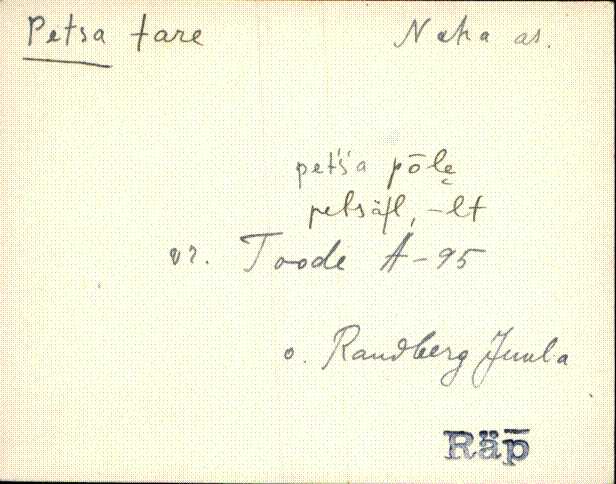 Petsa tare Naha as.
pet'š'a põle̬
petsäl, -lt
vr. Toode A-95
o. Randberg Juula
Räp